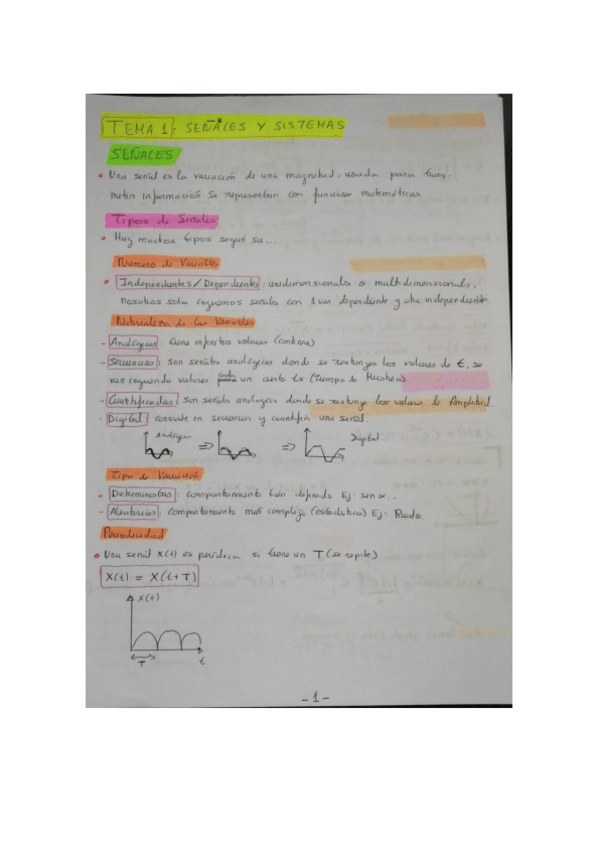 TEMA 1: SEÑALES Y SISTEMAS
SEÑALES
• Una señal es la variación de una magnitud, usada para trans-
mitir información Se representan con funciones matemáticas.
Tipos de Señales
• Hay muchos tipos según su...
Número de Variables
• Independientes/Dependientes: unidimensionales o multidimensionales.
nosotros solo cogemos señales con 1 var. dependiente y otra independiente.
Naturaleza de las Variables
- Analógicas: tiene infinitos valores (continua)
- Secuencias: son señales analógicas donde se restringen los valores de t, se
van cogiendo valores cada un cierto ts (Tiempo de Muestreo)
- Cuantificadas: son señales analógicas donde se restringe los valores de Amplitud.
- Digital: consiste en secuenciar y cuantificar una señal.
Analógica ⇒ ⇒ Digital
Tipo de Variación
- Deterministas: comportamiento bien definido Ej: seno...
- Aleatorias: comportamiento más complejo (estadística) Ej: Ruido.
Periodicidad
• Una señal x(t) es periódica si tiene un T (se repite)
X(t) = X(t+T)
X(t)
T t
- 1 -